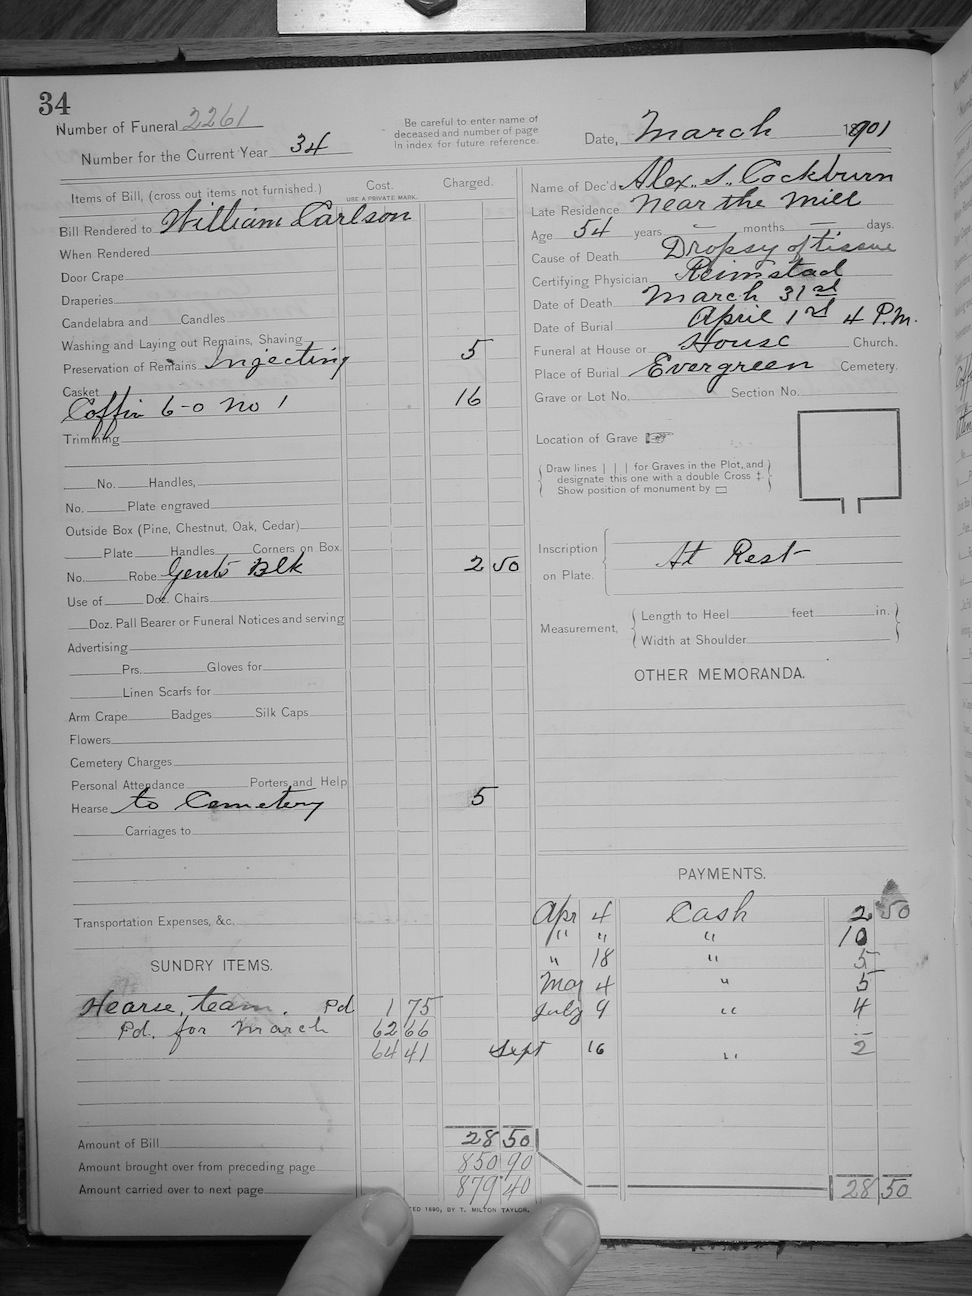 34
Number of Funeral 2261
Number for the Current Year 34
Be careful to enter name of
deceased and number of page
in index for future reference.
Date, March 1901
Items of Bill, (cross out items not furnished.) Cost. Charged.
USE A PRIVATE MARK.
Bill Rendered to William Carlson
When Rendered
Door Crape
Draperies
Candelabra and Candles
Washing and Laying out Remains, Shaving
Preservation of Remains Injecting 5
Casket
Coffin 6-0 No 1 16
Trimming
No. Handles,
No. Plate engraved
Outside Box (Pine, Chestnut, Oak, Cedar)
Plate Handles Corners on Box.
No. Robe Gents Blk 2 50
Use of Doz. Chairs
Doz. Pall Bearer or Funeral Notices and serving
Advertising
Prs. Gloves for
Linen Scarfs for
Arm Crape Badges Silk Caps
Flowers
Cemetery Charges
Personal Attendance Porters and Help
Hearse to Cemetery 5
Carriages to
Transportation Expenses, &c.
SUNDRY ITEMS.
Hearse, team. Pd 1 75
Pd. for March 62 66
64 41
Amount of Bill 28 50
Amount brought over from preceding page 850 90
Amount carried over to next page 879 40
Name of Dec'd Alex. S. Cockburn
Late Residence Near the Mill
Age 54 years - months - days.
Cause of Death Dropsy of tissue
Certifying Physician Reimstad
Date of Death March 31st
Date of Burial April 1st 4 P.M.
Funeral at House or House Church.
Place of Burial Evergreen Cemetery.
Grave or Lot No. Section No.
Location of Grave ☞
Draw lines | | | for Graves in the Plot, and
designate this one with a double Cross ‡
Show position of monument by ▭
Inscription
on Plate. At Rest
Measurement, Length to Heel feet in.
Width at Shoulder
OTHER MEMORANDA.
PAYMENTS.
Apr 4 Cash 2 50
" " " 10
" 18 " 5
May 4 " 5
July 9 " 4
Sept 16 " 2
28 50
1890, BY T. MILTON TAYLOR.